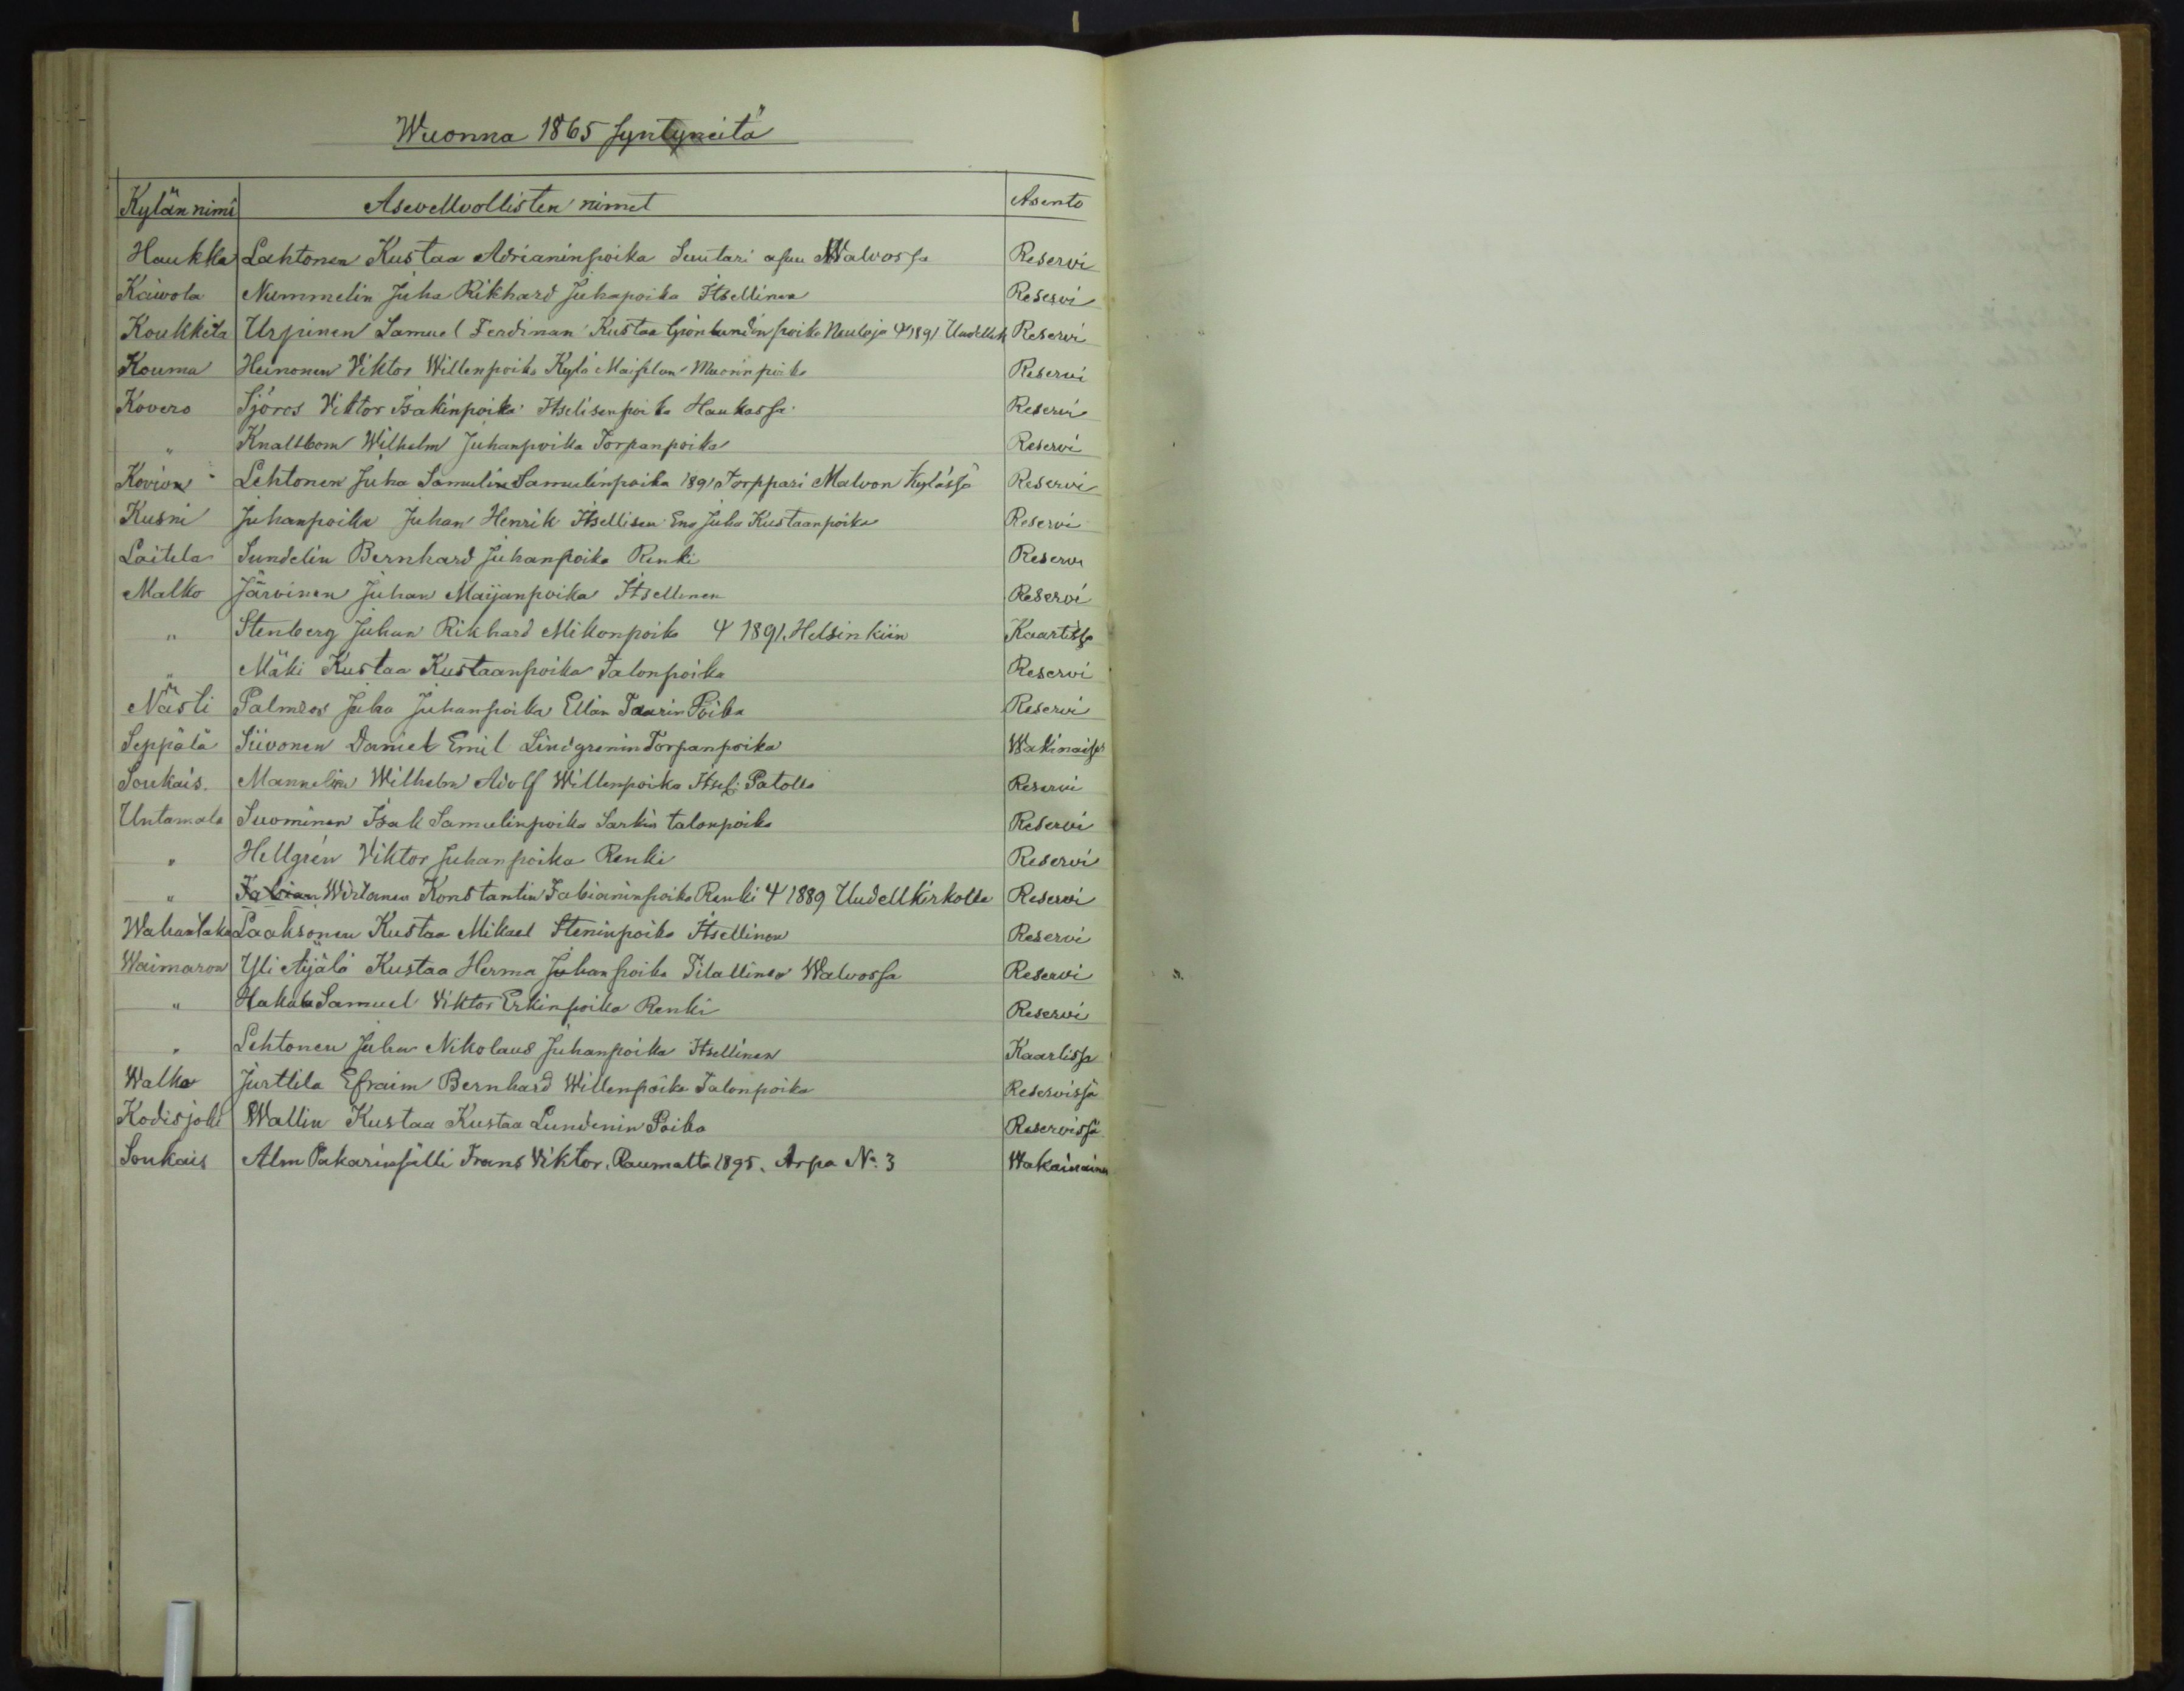 Wuonna 1865 syntyneitä
Kylän nimi Asevellvollisten nimet Asento
Haukka Lahtonen Kustaa Adrianinpoika Suutari asuu Walvossa Reservi
Kaivola Nummelin Juha Rikhard Juhapoika Itsellinen Reservi
Koukkela Urpinen Samuel Ferdinan Kustaa Grönlundinpoika Neuloja Ψ 1891 Uudellek Reservi
Kouma Heinonen Viktor Willenpoika Kylä Reservi
Kovero Sjöros Viktor Isakinpoika Itselisenpoika Haukassa Reservi
" Knaltbom Wilhelm Juhanpoika Torpanpoika Reservi
Kovion Lehtonen Juha Samulin Samulinpoika 1891 Torppari Malvon Kylässä Reservi
Kusni Juhanpoika Juhan Henrik Itsellisen Eno Juha Kustaanpoika Reservi
Laitila Sundelin Bernhard Juhanpoika Renki Reservi
Malko Järvinen Juhan Maijanpoika Itsellinen Reservi
" Stenberg Juhan Rikhard Mikonpoika Ψ 1891. Helsinkiin Kaartissa
" Mäki Kustaa Kustaanpoika Talonpoika Reservi
Nästi Palmros Juha Juhanpoika Ellän Taarin Poika Reservi
Seppälä Siivonen Daniel Emil Lindgrenin Torpanpoika Wakinaises
Soukais. Mannelin Wilhelm Adolf Willenpoika Itsel. Patolla Reservi
Untamala Suominen Isak Samulinpoika Sarkin talonpoika Reservi
" Hellgrén Viktor Juhanpoika Renki Reservi
" Fabian Wirtanen Konstantin Fabianinpoika Renki Ψ 1889 Uudellkirkolla Reservi
Wahantaka Laaksonen Kustaa Mikael Steninpoika Itsellinen Reservi
Waimaron Yli Äijälä Kustaa Herma Juhanpoika Tilallinen Walvossa Reservi
" Hakala Samuel Viktor Erkinpoika Renki Reservi
" Lehtonen Juha Nikolaus Juhanpoika Itsellinen Kaartissa
Walko Jurttila Efraim Bernhard Willenpoika Talonpoika Reservissä
Kodisjoki Wallin Kustaa Kustaa Lundenin Poika Reservissä
Soukais Alm Pakarinsälli Frans Viktor. Raumalta 1895. Arpa No. 3 Wakainainen